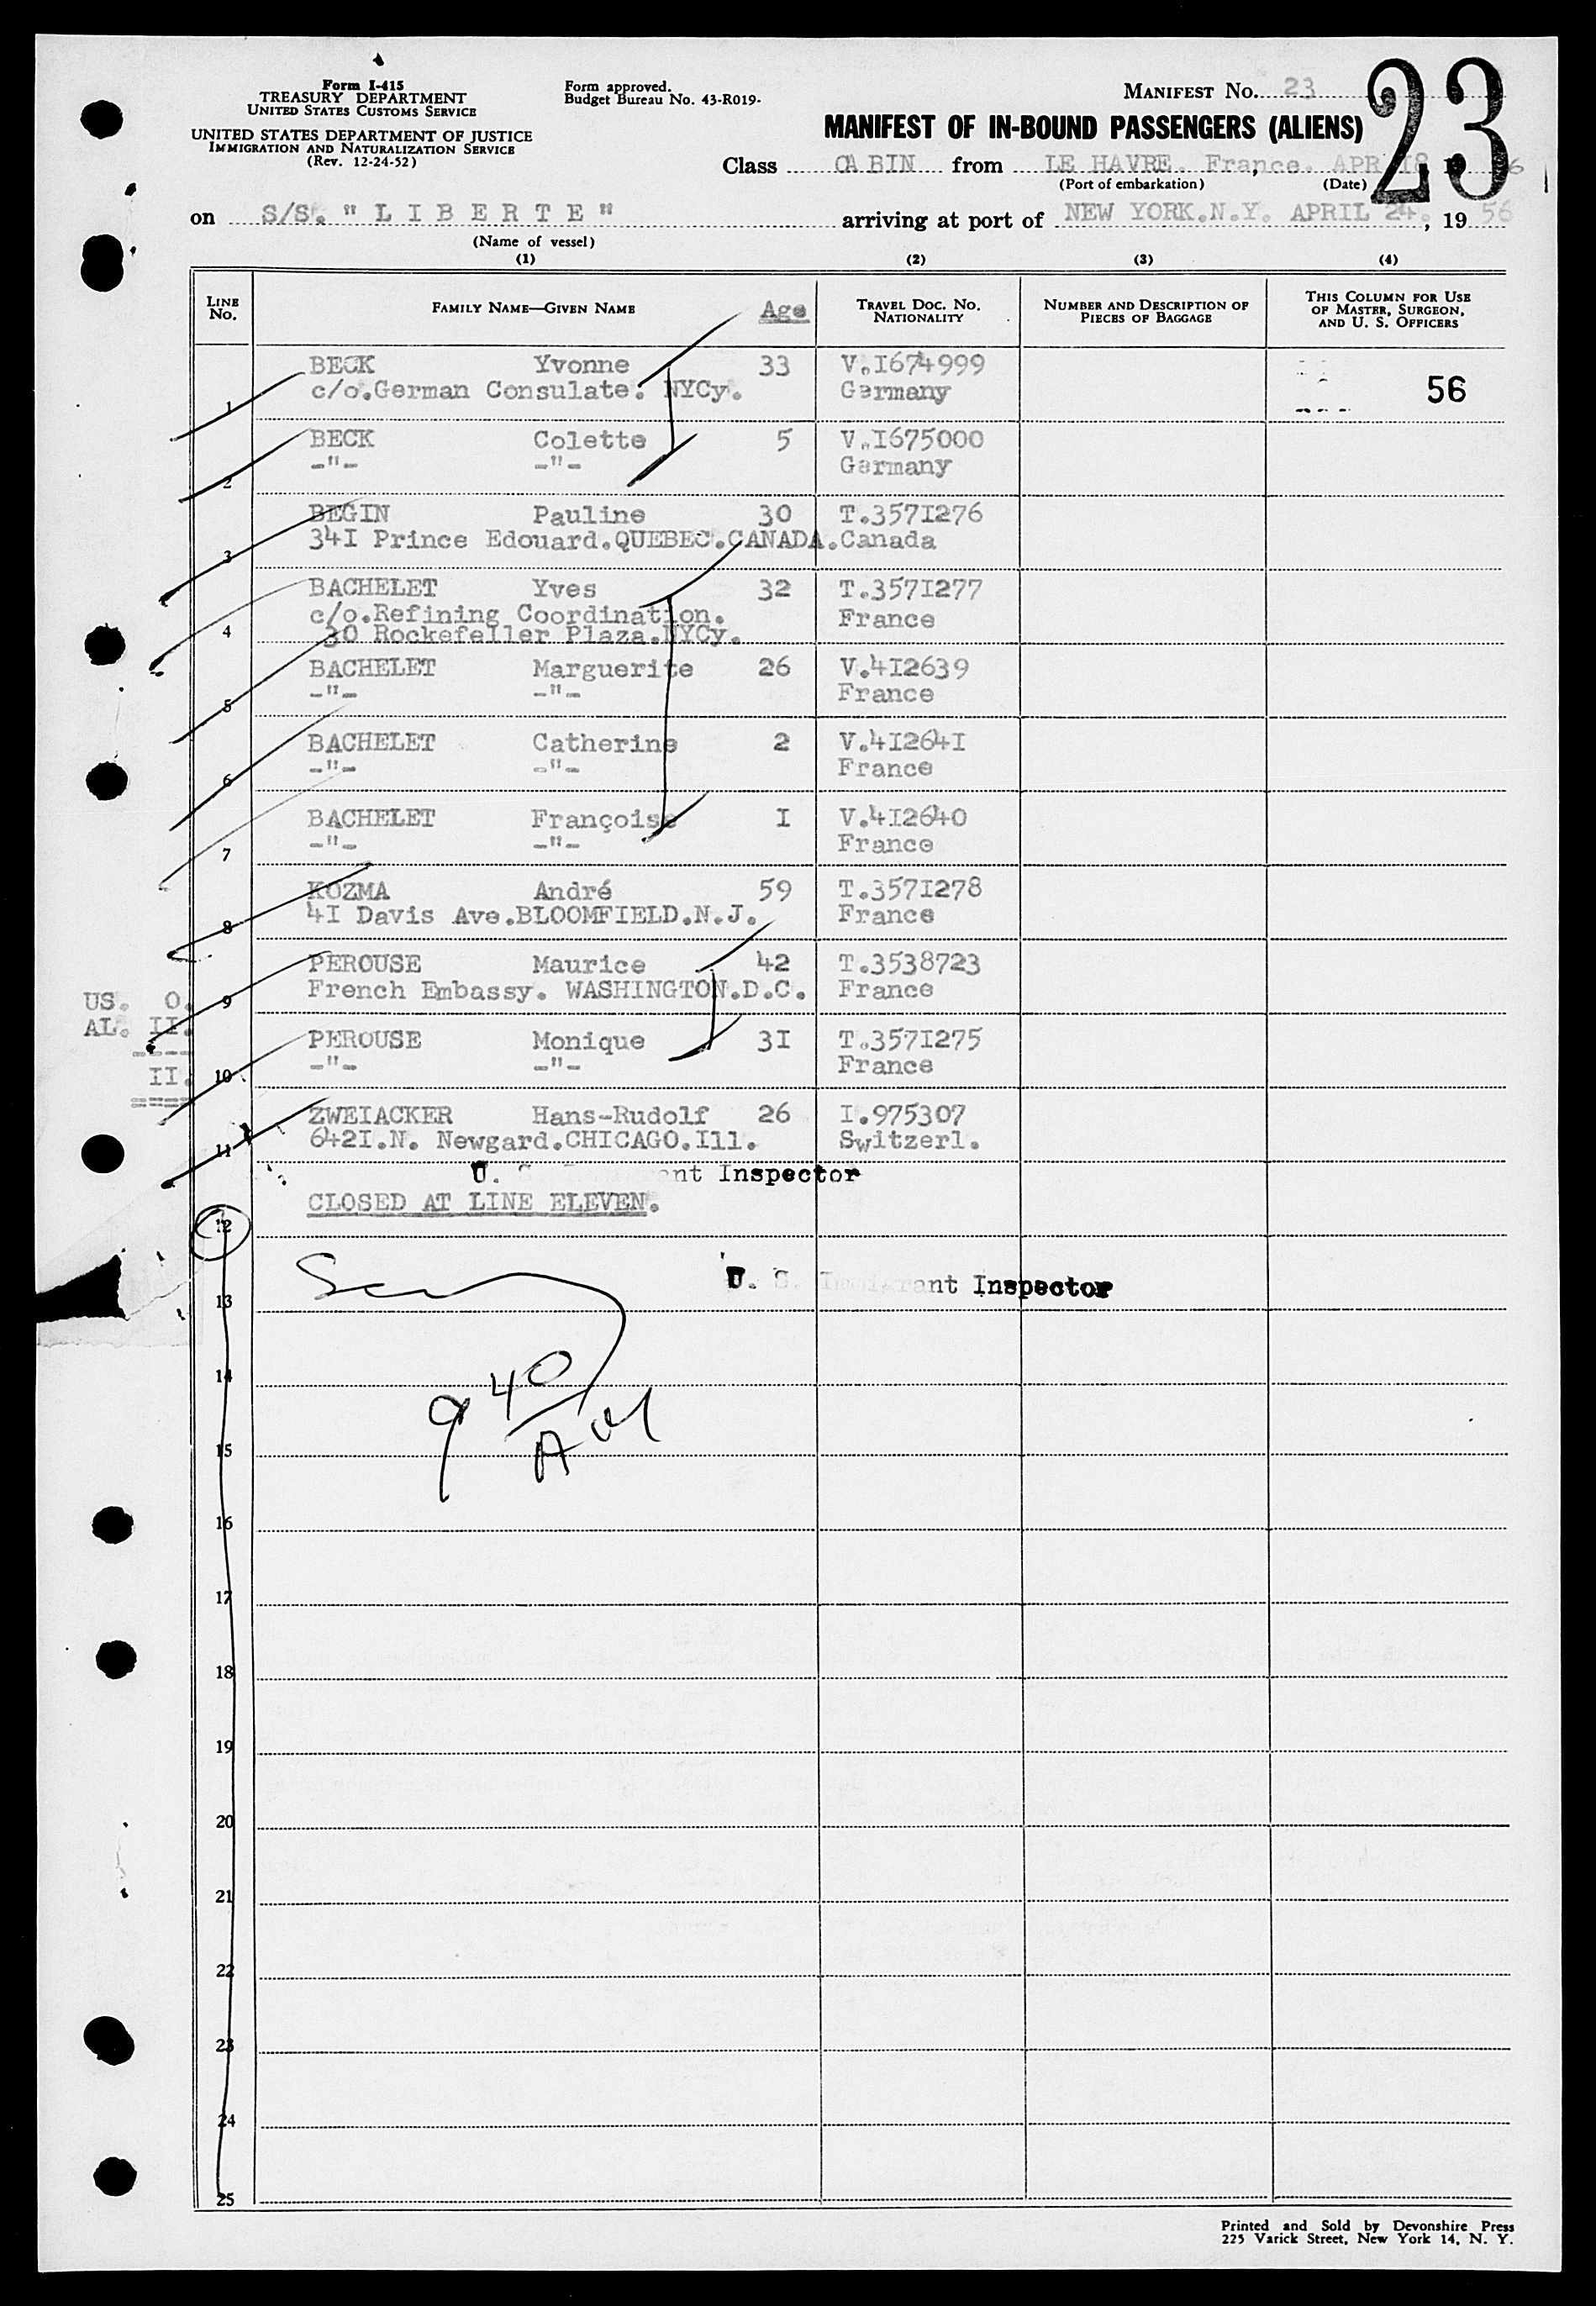 Form I-415
TREASURY DEPARTMENT
UNITED STATES CUSTOMS SERVICE
UNITED STATES DEPARTMENT OF JUSTICE
IMMIGRATION AND NATURALIZATION SERVICE
(Rev. 12-24-52)
Form approved.
Budget Bureau No. 43-R019-
MANIFEST No. 23
23
MANIFEST OF IN-BOUND PASSENGERS (ALIENS)
Class CABIN from LE HAVRE. France. APR 18
(Port of embarkation) (Date)
on S/S. " L I B E R T E " arriving at port of NEW YORK.N.Y. APRIL 24. , 19 56
(Name of vessel)
(1) (2) (3) (4)
LINE No. FAMILY NAME—GIVEN NAME Age TRAVEL DOC. No. NATIONALITY NUMBER AND DESCRIPTION OF PIECES OF BAGGAGE THIS COLUMN FOR USE OF MASTER, SURGEON, AND U. S. OFFICERS
BECK Yvonne 33 V.I674999
c/o.German Consulate. NYCy. Germany 56
1
BECK Colette 5 V.I675000
-"- -"- Germany
2
BEGIN Pauline 30 T.357I276
34I Prince Edouard.QUEBEC.CANADA.Canada
3
BACHELET Yves 32 T.357I277
c/o.Refining Coordination. France
4 30 Rockefeller Plaza.NYCy.
BACHELET Marguerite 26 V.4I2639
-"- -"- France
5
BACHELET Catherine 2 V.4I264I
-"- -"- France
6
BACHELET Françoise I V.4I2640
-"- -"- France
7
KOZMA André 59 T.357I278
4I Davis Ave.BLOOMFIELD.N.J. France
8
PEROUSE Maurice 42 T.3538723
French Embassy. WASHINGTON.D.C. France
9
US. 0.
AL. II.
----
II.
====
PEROUSE Monique 3I T.357I275
-"- -"- France
10
ZWEIACKER Hans-Rudolf 26 I.975307
642I.N. Newgard.CHICAGO.Ill. Switzerl.
11
U. S. Immigrant Inspector
CLOSED AT LINE ELEVEN.
12
U. S. Immigrant Inspector
13
9 40 AM
14
15
16
17
18
19
20
21
22
23
24
25
Printed and Sold by Devonshire Press
225 Varick Street, New York 14, N. Y.